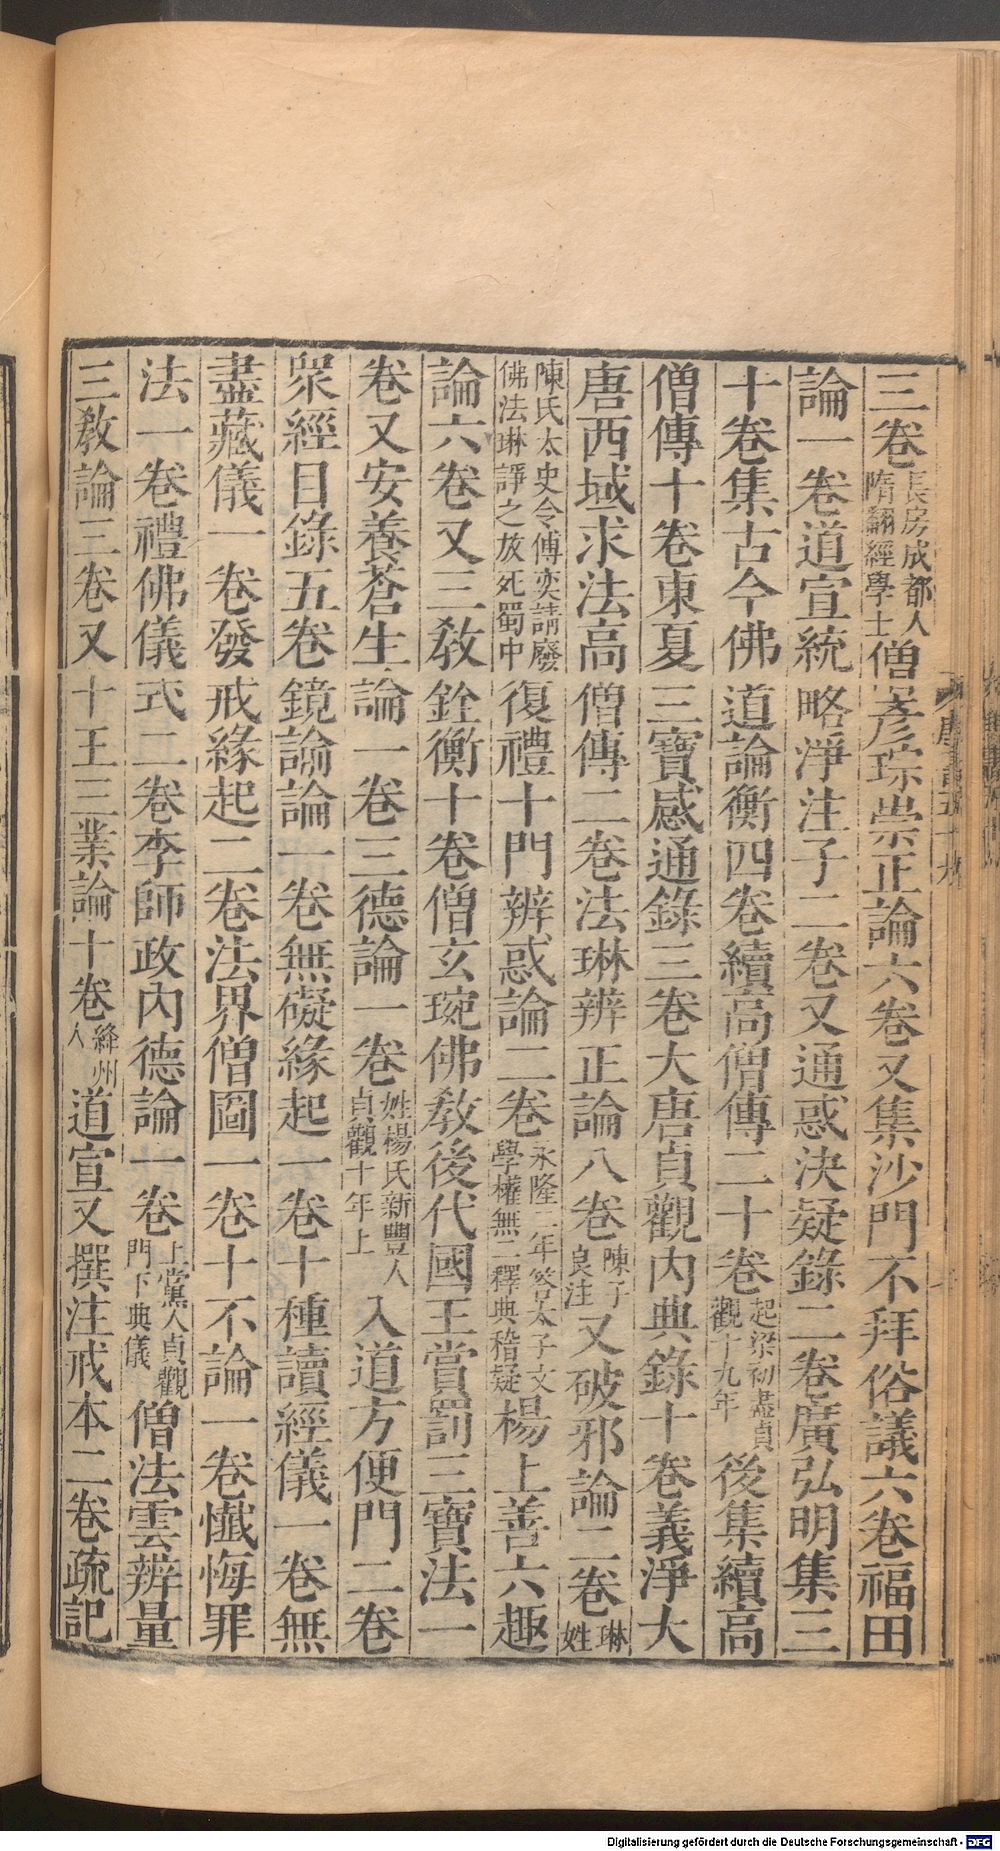 三卷長房成都人隋翻經學士僧彥琮崇正論六卷又集沙門不拜俗議六卷福田
論一卷道宣統略淨注子二卷又通惑決疑錄二卷廣弘明集三
十卷集古今佛道論衡四卷續高僧傳二十卷起梁初盡貞觀十九年後集續高
僧傳十卷東夏三寶感通錄三卷大唐貞觀內典錄十卷義淨大
唐西域求法高僧傳二卷法琳辨正論八卷陳子良注又破邪論二卷琳姓
陳氏太史令傅奕請廢佛法琳諍之放死蜀中復禮十門辨惑論二卷永隆二年答太子文學權無二釋典稽疑楊上善六趣
論六卷又三教銓衡十卷僧玄琬佛教後代國王賞罰三寶法一
卷又安養蒼生論一卷三德論一卷姓楊氏新豐人貞觀十年上入道方便門二卷
眾經目錄五卷鏡諭論一卷無礙緣起一卷十種讀經儀一卷無
盡藏儀一卷發戒緣起二卷法界僧圖一卷十不論一卷懺悔罪
法一卷禮佛儀式二卷李師政內德論一卷上黨人貞觀門下典儀僧法雲辨量
三教論三卷又十王三業論十卷絳州人道宣又撰注戒本二卷疏記
Digitalisierung gefördert durch die Deutsche Forschungsgemeinschaft - DFG